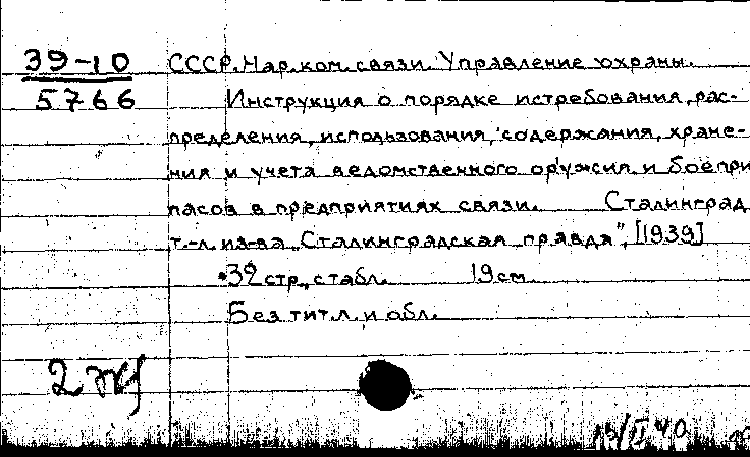 39-10
5766
СССР. Нар. ком. связи. Управление охраны.
Инструкция о порядке истребования, рас-
пределения, использования, содержания, хране-
ния и учета ведомственного оружия и боепри
пасов в предприятиях связи. Сталинград
т.-л. из-ва „Сталинградская правда", [1939]
32 стр., с табл. 19 см
Без тит. л. и обл.